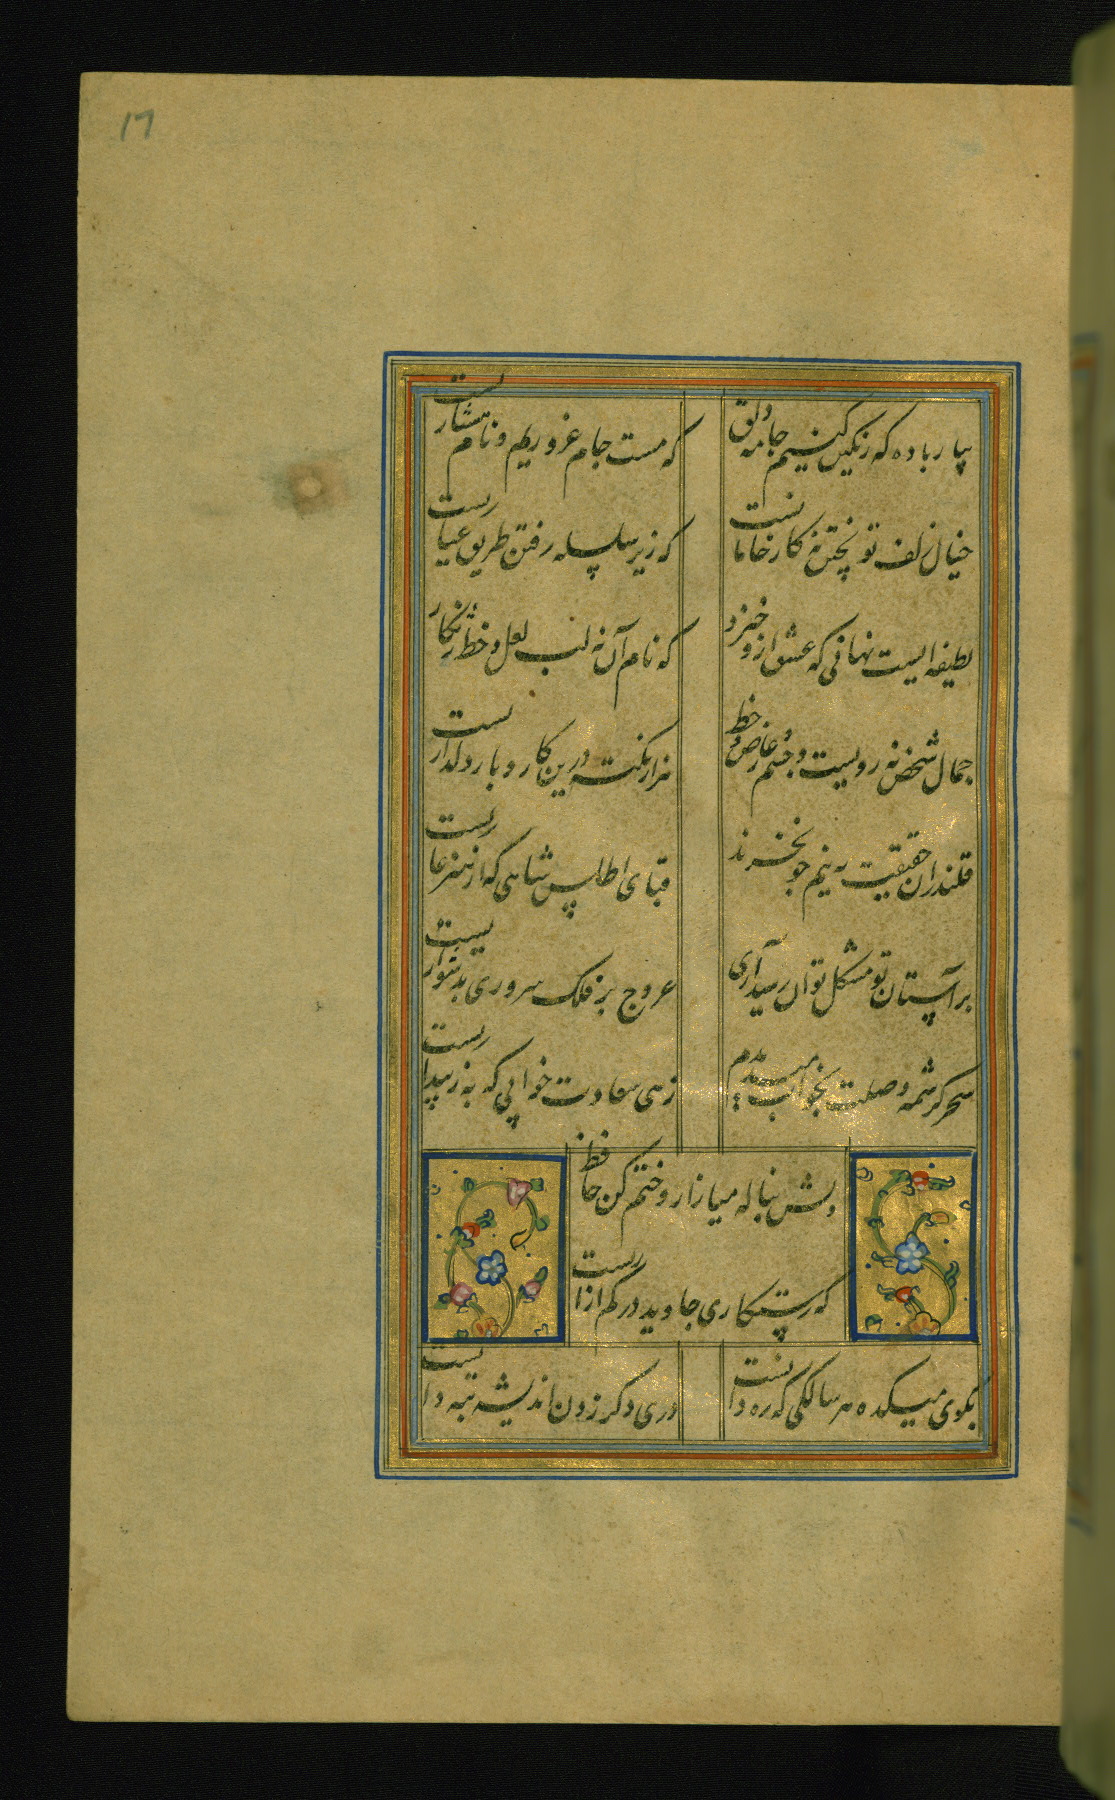 17
بیار باده که رنگین کنیم جامه دلق
که مست جام غروریم و نام هشیاریست
خیال زلف تو پختن نه کار خامانست
که زیر سلسله رفتن طریق عیاریست
لطیفه ایست نهانی که عشق ازو خیزد
که نام آن نه لب لعل و خط زنگاریست
جمال شخص نه رویست و چشم و عارض و خط
هزار نکته درین کار و بار دلداریست
قلندران حقیقت به نیم جو نخرند
قبای اطلس شاهی که از هنر عاریست
بر آستان تو مشکل توان رسید آری
عروج بر فلک سروری بدشواریست
سحر کرشمه وصلت بخواب میدیدم
زهی سعادت خوابی که به ز بیداریست
دلش بناله میازار و ختم کن حافظ
که رستکاری جاوید در کم ازاریست
بکوی میکده هر سالکی که ره دانست
دری دکر زدن اندیشه تبه دانست